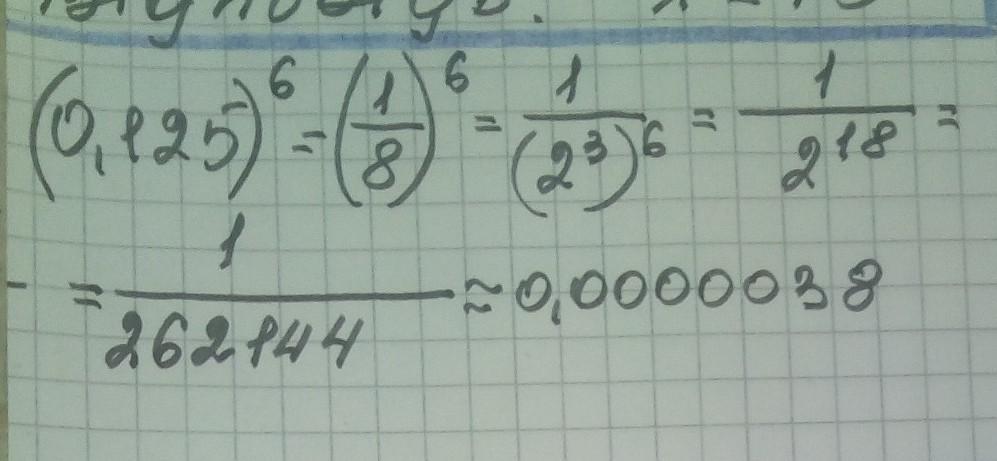 (0,125)^6 = (1/8)^6 = 1/(2^3)^6 = 1/2^18 =
= 1/262144 ≈ 0,0000038